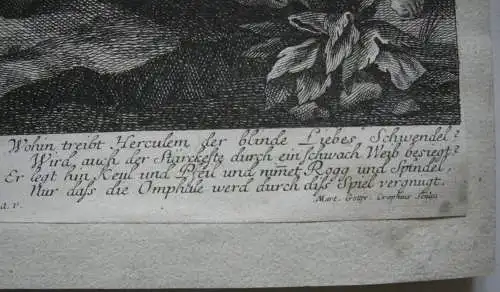 Wohin treibt Herculem der blinde Liebes Schwendel?
Wird auch der Stärckeste durch ein schwach Weib besiegt?
Er legt hin Keul und Pfeil und nimet Rogg und Spindel,
Nur dass die Omphale werd durch diss Spiel vergnugt.
a. v.
Mart. Gottfr. Crophius Sculps